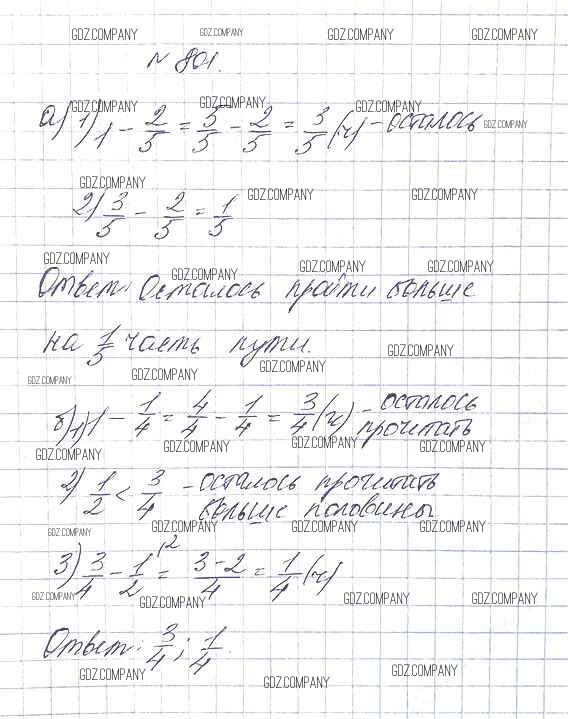 GDZ.COMPANY GDZ.COMPANY GDZ.COMPANY GDZ.COMPANY
№ 801.
GDZ.COMPANY GDZ.COMPANY GDZ.COMPANY
а) 1) 1 - 2/5 = 5/5 - 2/5 = 3/5 (ч) - осталось GDZ.COMPANY
GDZ.COMPANY GDZ.COMPANY GDZ.COMPANY
2) 3/5 - 2/5 = 1/5
GDZ.COMPANY GDZ.COMPANY GDZ.COMPANY GDZ.COMPANY
Ответ: Осталось пройти больше
на 1/5 часть пути. GDZ.COMPANY
GDZ.COMPANY GDZ.COMPANY GDZ.COMPANY
б) 1) 1 - 1/4 = 4/4 - 1/4 = 3/4 (ч) - осталось
прочитать
GDZ.COMPANY GDZ.COMPANY GDZ.COMPANY GDZ.COMPANY
2) 1/2 < 3/4 - осталось прочитать
больше половины
GDZ.COMPANY GDZ.COMPANY GDZ.COMPANY GDZ.COMPANY
3) 3/4 - 1/2 (2 = 3-2/4 = 1/4 (ч)
GDZ.COMPANY GDZ.COMPANY GDZ.COMPANY GDZ.COMPANY
Ответ: 3/4; 1/4.
GDZ.COMPANY GDZ.COMPANY GDZ.COMPANY